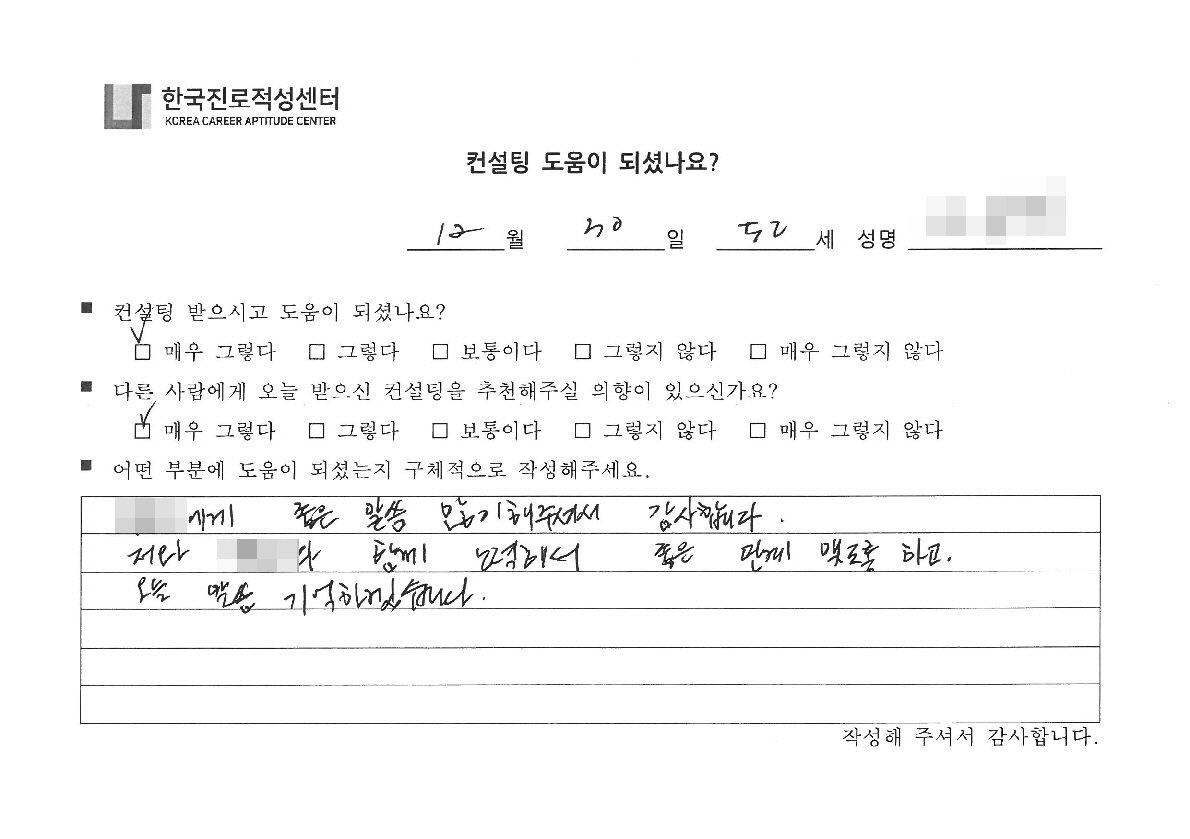 한국진로적성센터
KOREA CAREER APTITUDE CENTER
컨설팅 도움이 되셨나요?
12 월 30 일 52 세 성명
■ 컨설팅 받으시고 도움이 되셨나요?
☑ 매우 그렇다 □ 그렇다 □ 보통이다 □ 그렇지 않다 □ 매우 그렇지 않다
■ 다른 사람에게 오늘 받으신 컨설팅을 추천해주실 의향이 있으신가요?
☑ 매우 그렇다 □ 그렇다 □ 보통이다 □ 그렇지 않다 □ 매우 그렇지 않다
■ 어떤 부분에 도움이 되셨는지 구체적으로 작성해주세요.
에게 좋은 말씀 많이 해주셔서 감사합니다.
저와 함께 노력해서 좋은 관계 맺도록 하고.
오늘 말씀 기억하겠습니다.
작성해 주셔서 감사합니다.